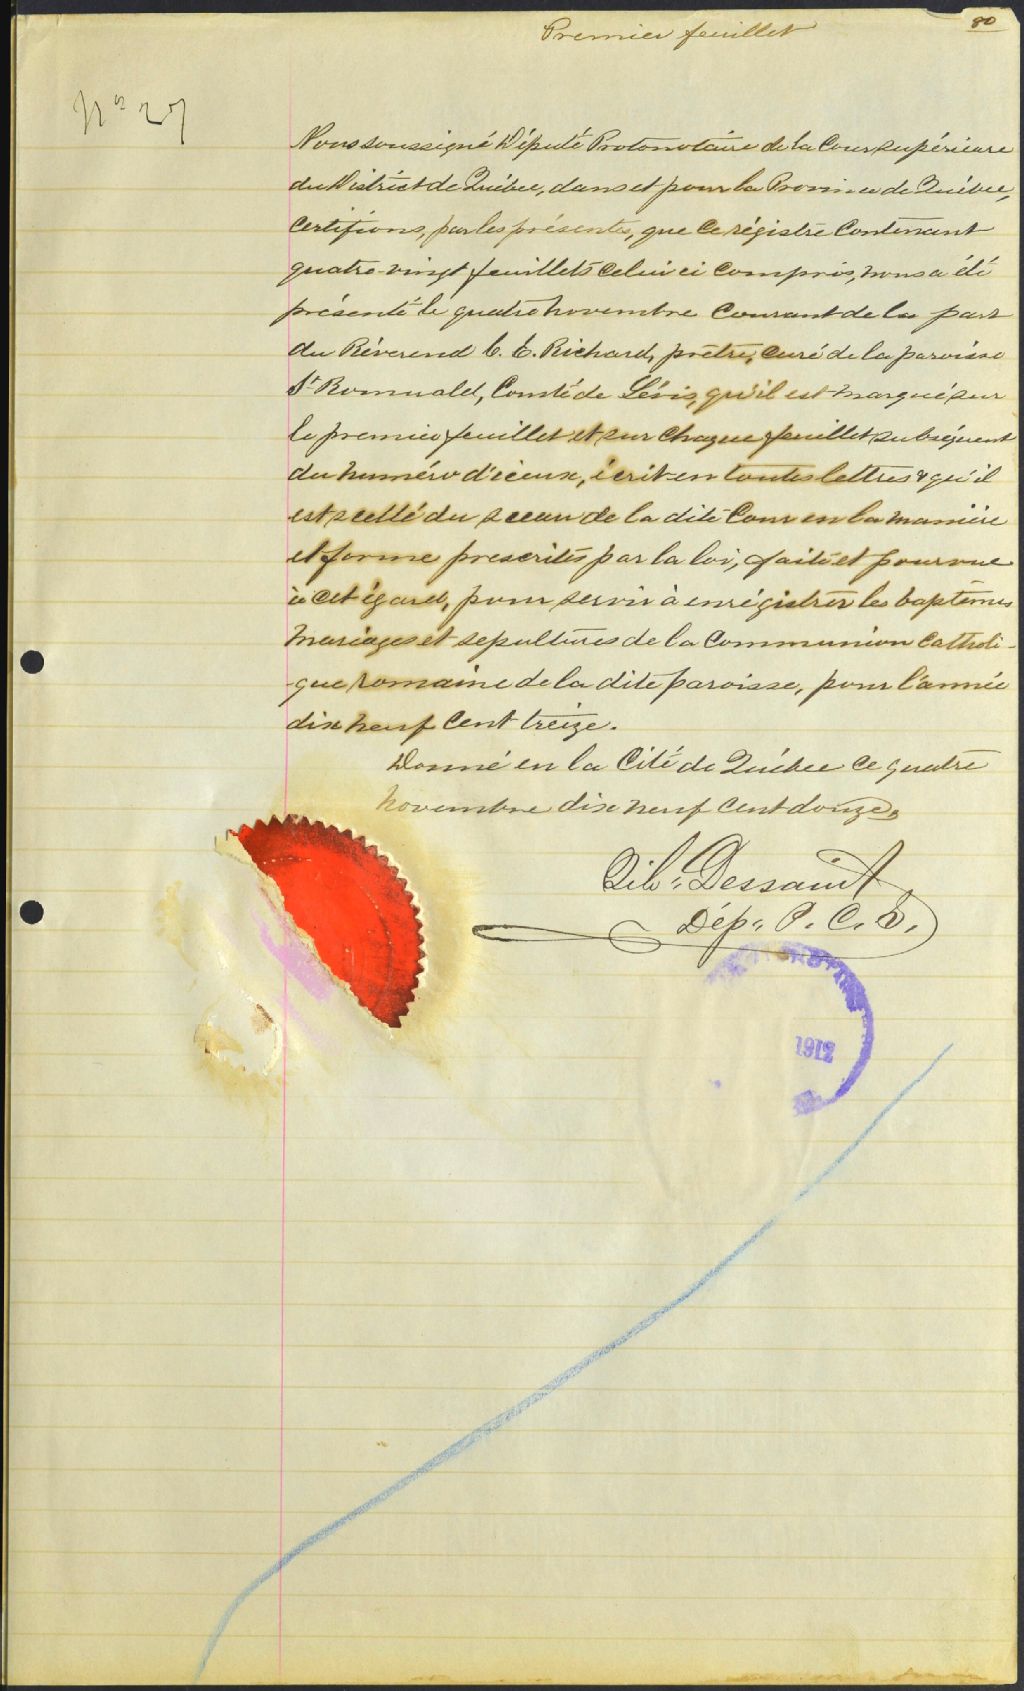 80
Premier feuillet
No 27
Nous soussigné Député Protonotaire de la Cour supérieure
du District de Québec, dans et pour la Province de Québec,
Certifions, par les présentes, que ce régistre Contenant
quatre-vingt feuillets celui ci compris, nous a été
présenté le quatre novembre Courant de la part
du Révérend C. E. Richard, prêtre, Curé de la paroisse
St Romuald, Comté de Lévis, qu'il est marqué sur
le premier feuillet et sur chaque feuillet subséquent
du numéro d'iceux, écrit en toutes lettres & qu'il
est scellé du sceau de la dite Cour en la manière
et forme prescrites par la loi, faite et pourvue
à cet égard, pour servir à enrégistrer les baptêmes
mariages et sepultures de la Communion Catholi-
-que romaine de la dite paroisse, pour l'année
dix neuf Cent treize.
Donné en la Cité de Québec ce quatre
novembre dix neuf cent douze,
Dessault
Dép. P. C. S.
1912